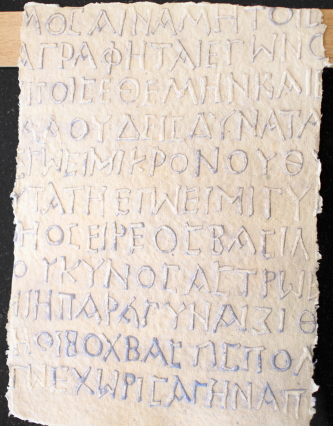 ΜΟΣΑΙΝΑΜΗΤΟΙΣ
ΑΓΡΑΦΗΤΑΙΕΓΩΝΟ
ΠΟΙΣΕΘΕΜΗΝΚΑΙ
ΑΑΟΥΔΕΙΣΔΥΝΑΤΑ
ΕΓΩΕΙΜΙΚΡΟΝΟΥΘ
ΥΤΑΤΗΕΓΩΕΙΜΙΓΥ
ΗΟΣΕΙΡΕΟΣΒΑΣΙΛ
ΟΥΚΥΝΟΣΑΣΤΡΩ
ΙΗΠΑΡΑΓΥΝΑΙΞΙΘ
ΜΟΙΒΟΥΒΑΣΤΙΣΠΟΛ
ΓΩΕΧΩΡΙΣΑΓΗΝΑΠ